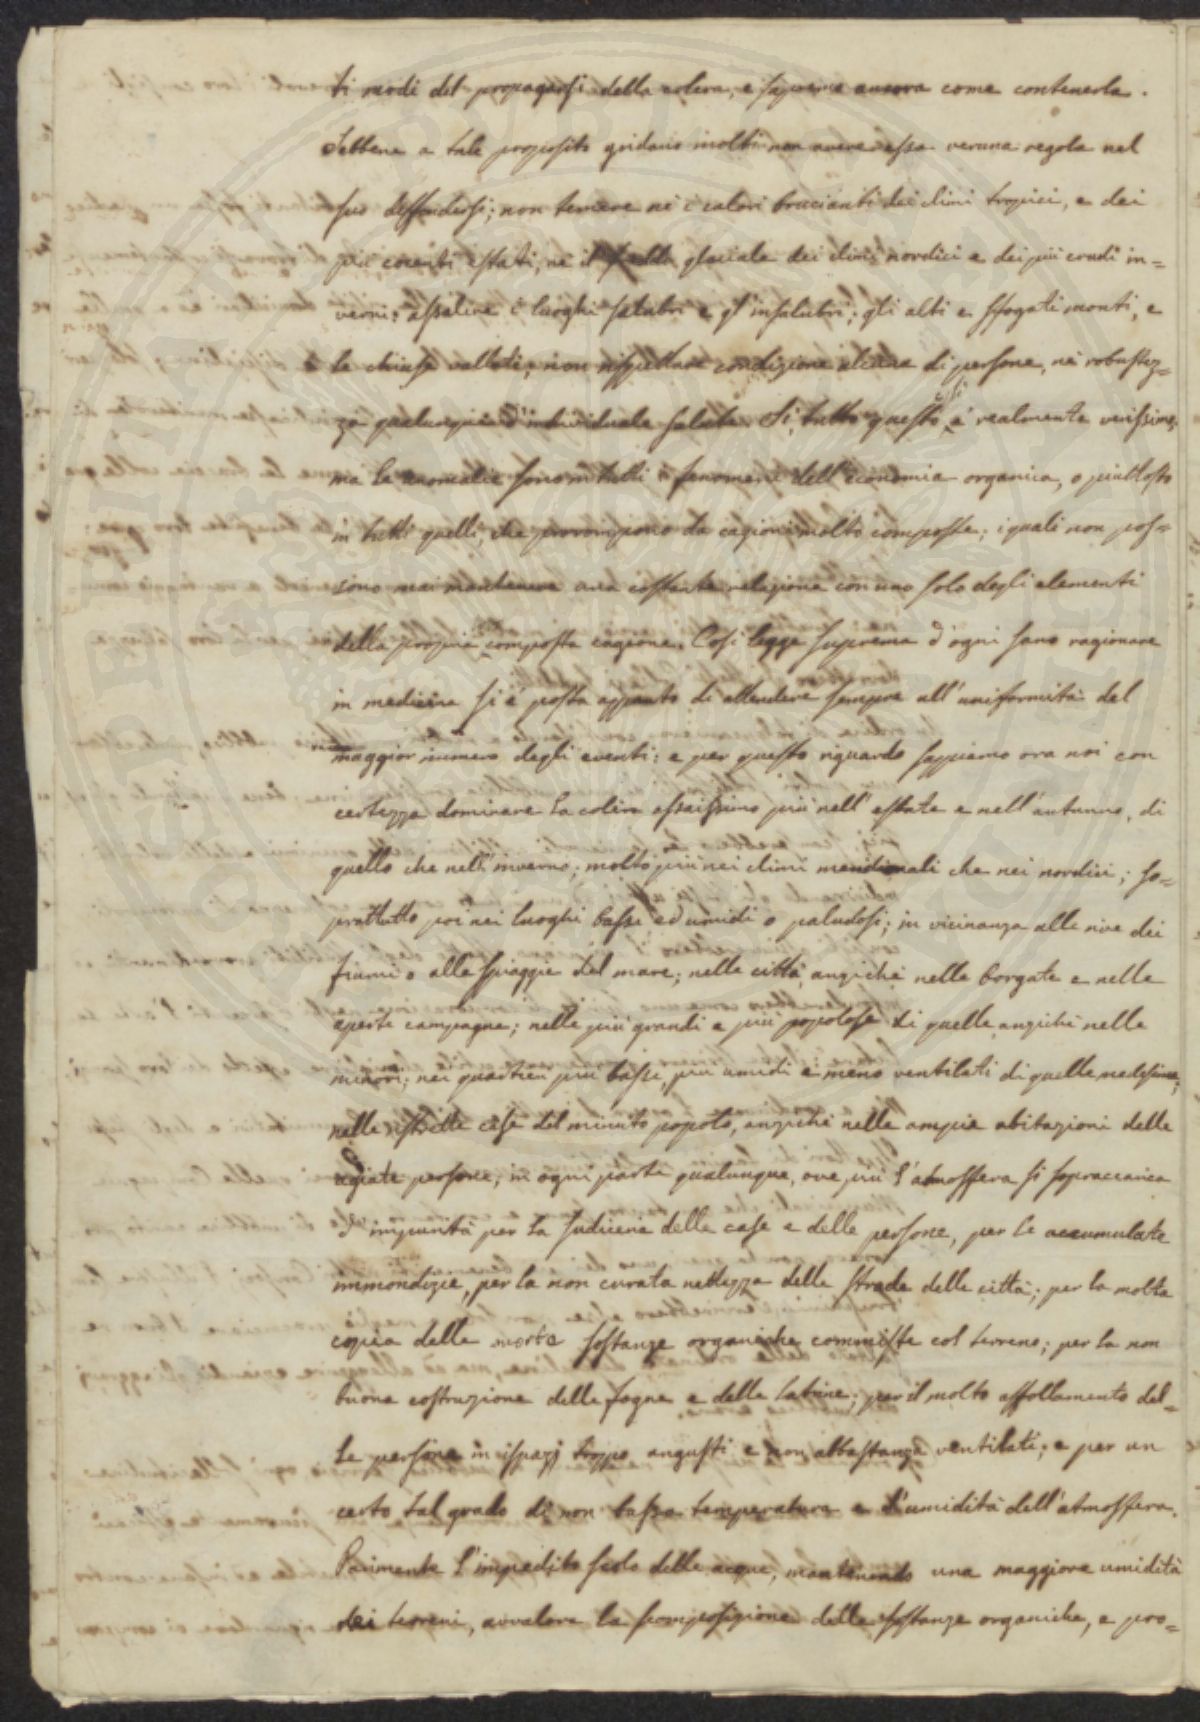 ti modi del propagarsi della colera, e sapremo ancora come contenerla.
Sebbene a tale proposito gridano molti non avere essa veruna regola nel
suo diffondersi; non temere nè i calori brucianti dei climi tropici, e dei
più cocenti estati, nè il freddo glaciale dei climi nordici e dei più crudi in=
verni: assalire i luoghi salubri e gl'insalubri; gli alti e sfogati monti, e
le chiuse vallate; non rispettare condizione alcuna di persone, nè robustez=
za qualunque d'individuale salute. Sì, tutto questo è realmente verissimo,
ma le anomalie sono in tutti i fenomeni dell'economia organica, o piuttosto
in tutti quelli, che provengono da cagioni molto composte; i quali non pos=
sono mai mantenere una costante relazione con uno solo degli elementi
della propria composta cagione. Così legge suprema d'ogni sano ragionare
in medicina si è posta appunto di attendere sempre all'uniformità del
maggior numero degli eventi: e per questo riguardo sappiamo ora noi con
certezza dominare la colera assaissimo più nell'estate e nell'autunno, di
quello che nell'inverno; molto più nei climi meridionali che nei nordici; so=
prattutto poi nei luoghi bassi ed umidi o paludosi; in vicinanza alle rive dei
fiumi o alle spiagge del mare; nelle città, anzichè nelle borgate e nelle
aperte campagne; nelle più grandi e più popolose di quelle, anzichè nelle
minori; nei quartieri più bassi, più umidi e meno ventilati di quelle medesime;
nelle strette case del minuto popolo, anzichè nelle ampie abitazioni delle
agiate persone; in ogni parte qualunque, ove più l'atmosfera si sopraccarica
d'impurità per la sudiceria delle case e delle persone, per le accumulate
immondizie, per la non curata nettezza delle strade delle città; per la molta
copia delle morte sostanze organiche commiste col terreno; per la non
buona costruzione delle fogne e delle latrine; per il molto affollamento del=
le persone in ispazj troppo angusti e non abbastanza ventilati; e per un
certo tal grado di non bassa temperatura e d'umidità dell'atmosfera.
Parimente l'impedito scolo delle acque, mantenendo una maggiore umidità
dei terreni, avvalora la scomposizione delle sostanze organiche, e pro=